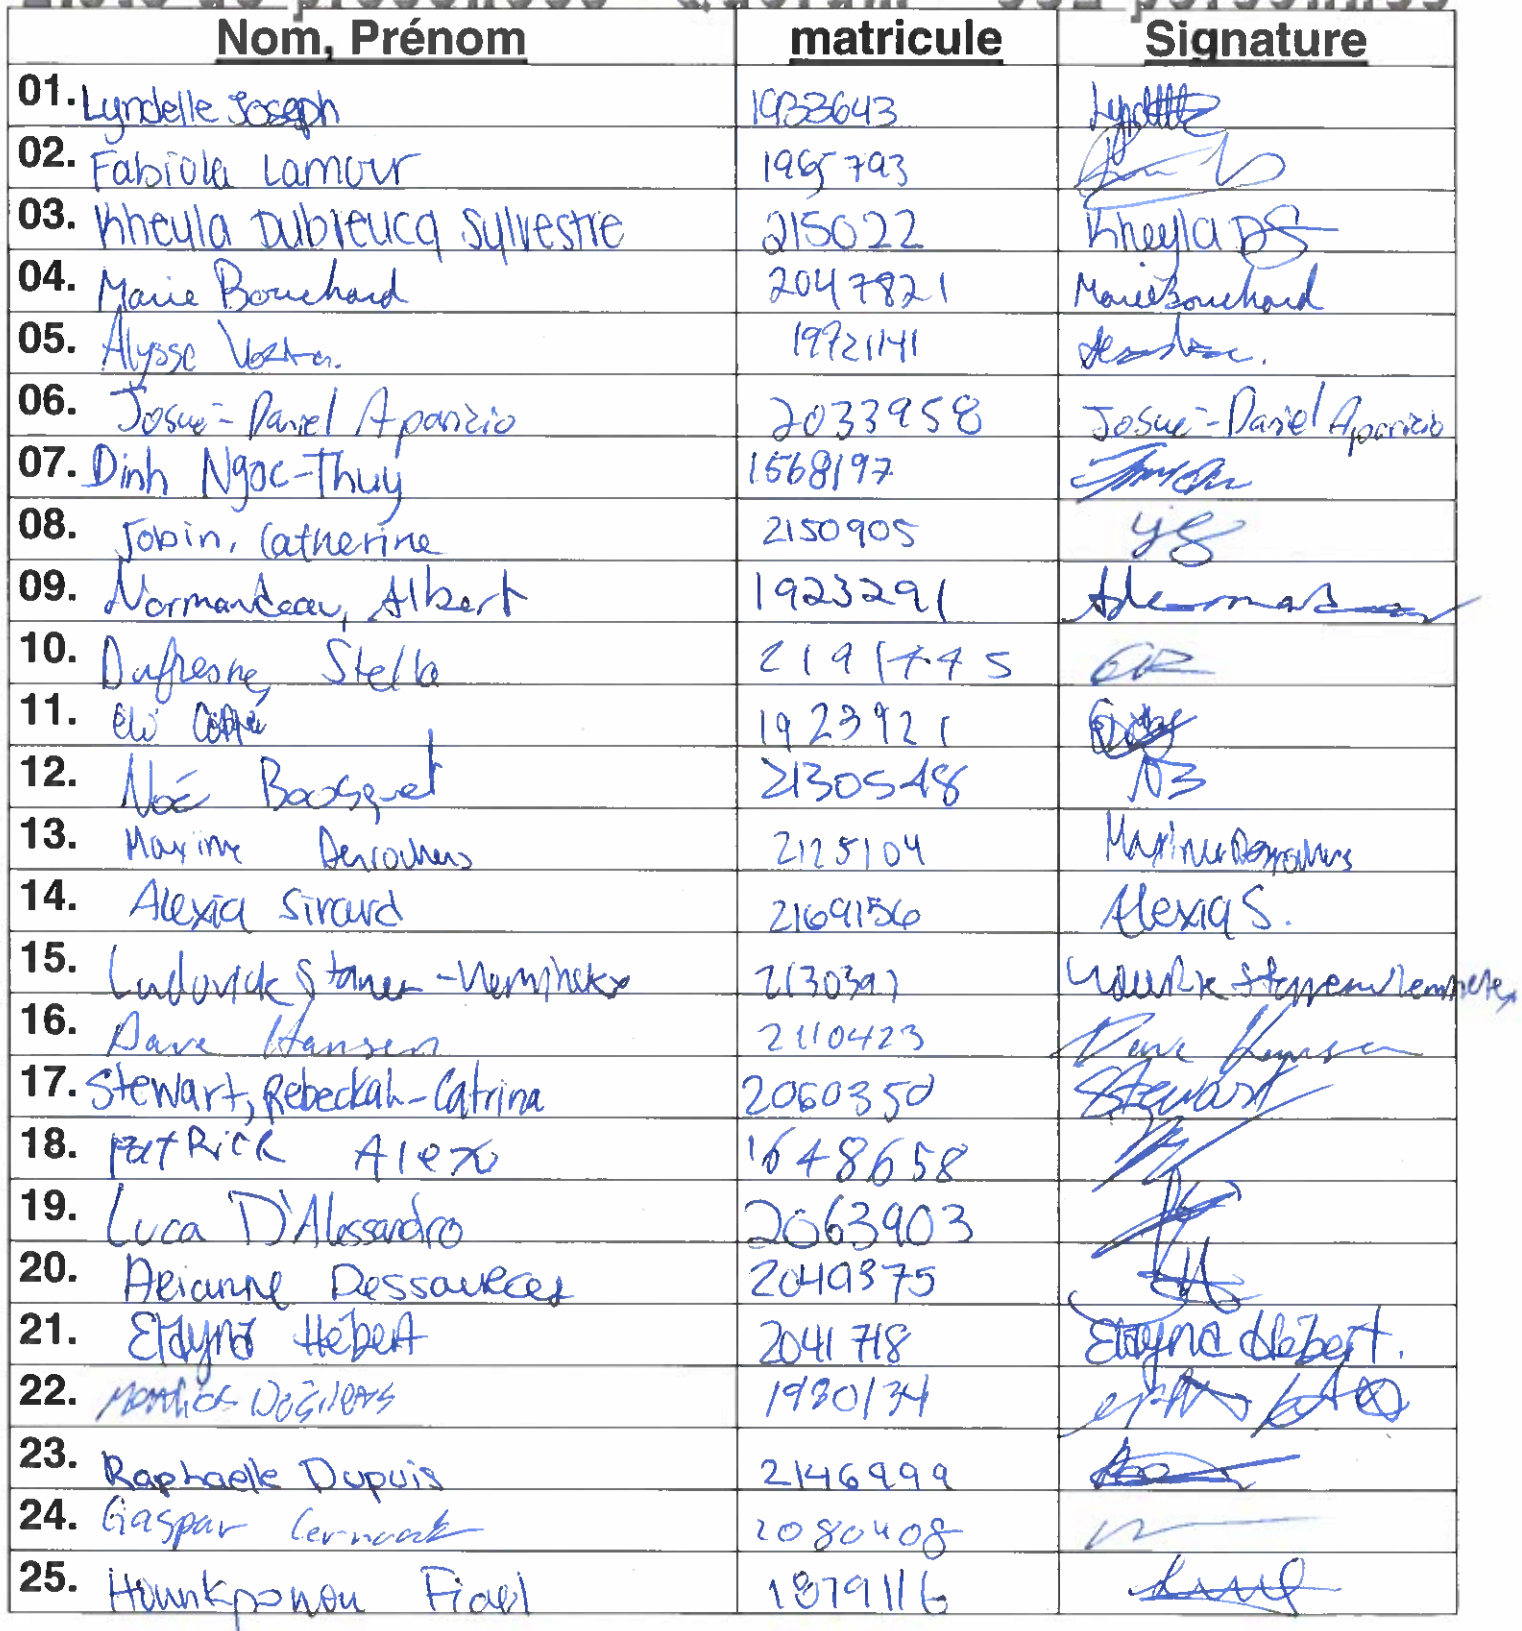 Nom, Prénom matricule Signature
01. Lyndelle Joseph 1933643
02. Fabiola Lamour 1965793
03. Kheyla Dubreucq Sylvestre 215022 Kheyla DS
04. Marie Bouchard 2047821 Marie Bouchard
05. Alysse 19721141
06. Josué-Daniel Aparicio 2033958 Josué-Daniel Aparicio
07. Dinh Ngoc-Thuy 1568197
08. Jobin, Catherine 2150905
09. Normandeau, Albert 1923291
10. Dufresne, Stella 2191775
11. 1923921
12. Noé Bousquet 2130548 NB
13. Maxime Desrochers 2125104 Maxime Desrochers
14. Alexia Sirard 2169156 Alexia S.
15. Ludovick 2130397
16. Dave Hansen 2110423 Dave Hansen
17. Stewart, Rebeckah-Catrina 2060350 Stewart
18. Patrick Alex 1648658
19. Luca D'Alessandro 2063903
20. Arianne Dessources 2049375
21. Eldyna Hébert 2041718 Eldyna Hébert.
22. 1930134
23. Raphaelle Dupuis 2146999
24. Gaspar 2080408
25. Hounkponou Fidel 1879116